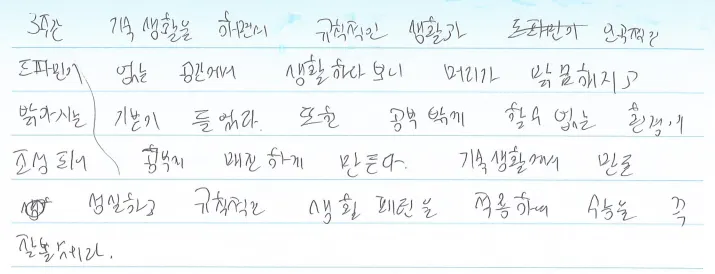 3주간 기숙 생활을 하면서 규칙적인 생활과 인공적인
도파민이 없는 공간에서 생활하다 보니 머리가 맑음해지고
맑아지는 기분이 들었다. 또한 공부 밖에 할 수 없는 환경이
조성 되어 공부에 매진 하게 만든다. 기숙생활에서 만든
성실하고 규칙적인 생활 패턴을 적용하여 수능을 꼭
잘볼 것이다.